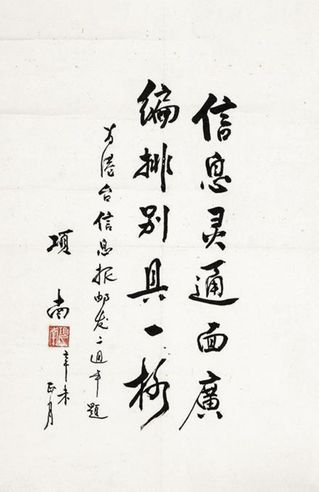 信息灵通面廣
編排别具一格
为港台信息报邮发二週年題
項南
辛未
正月